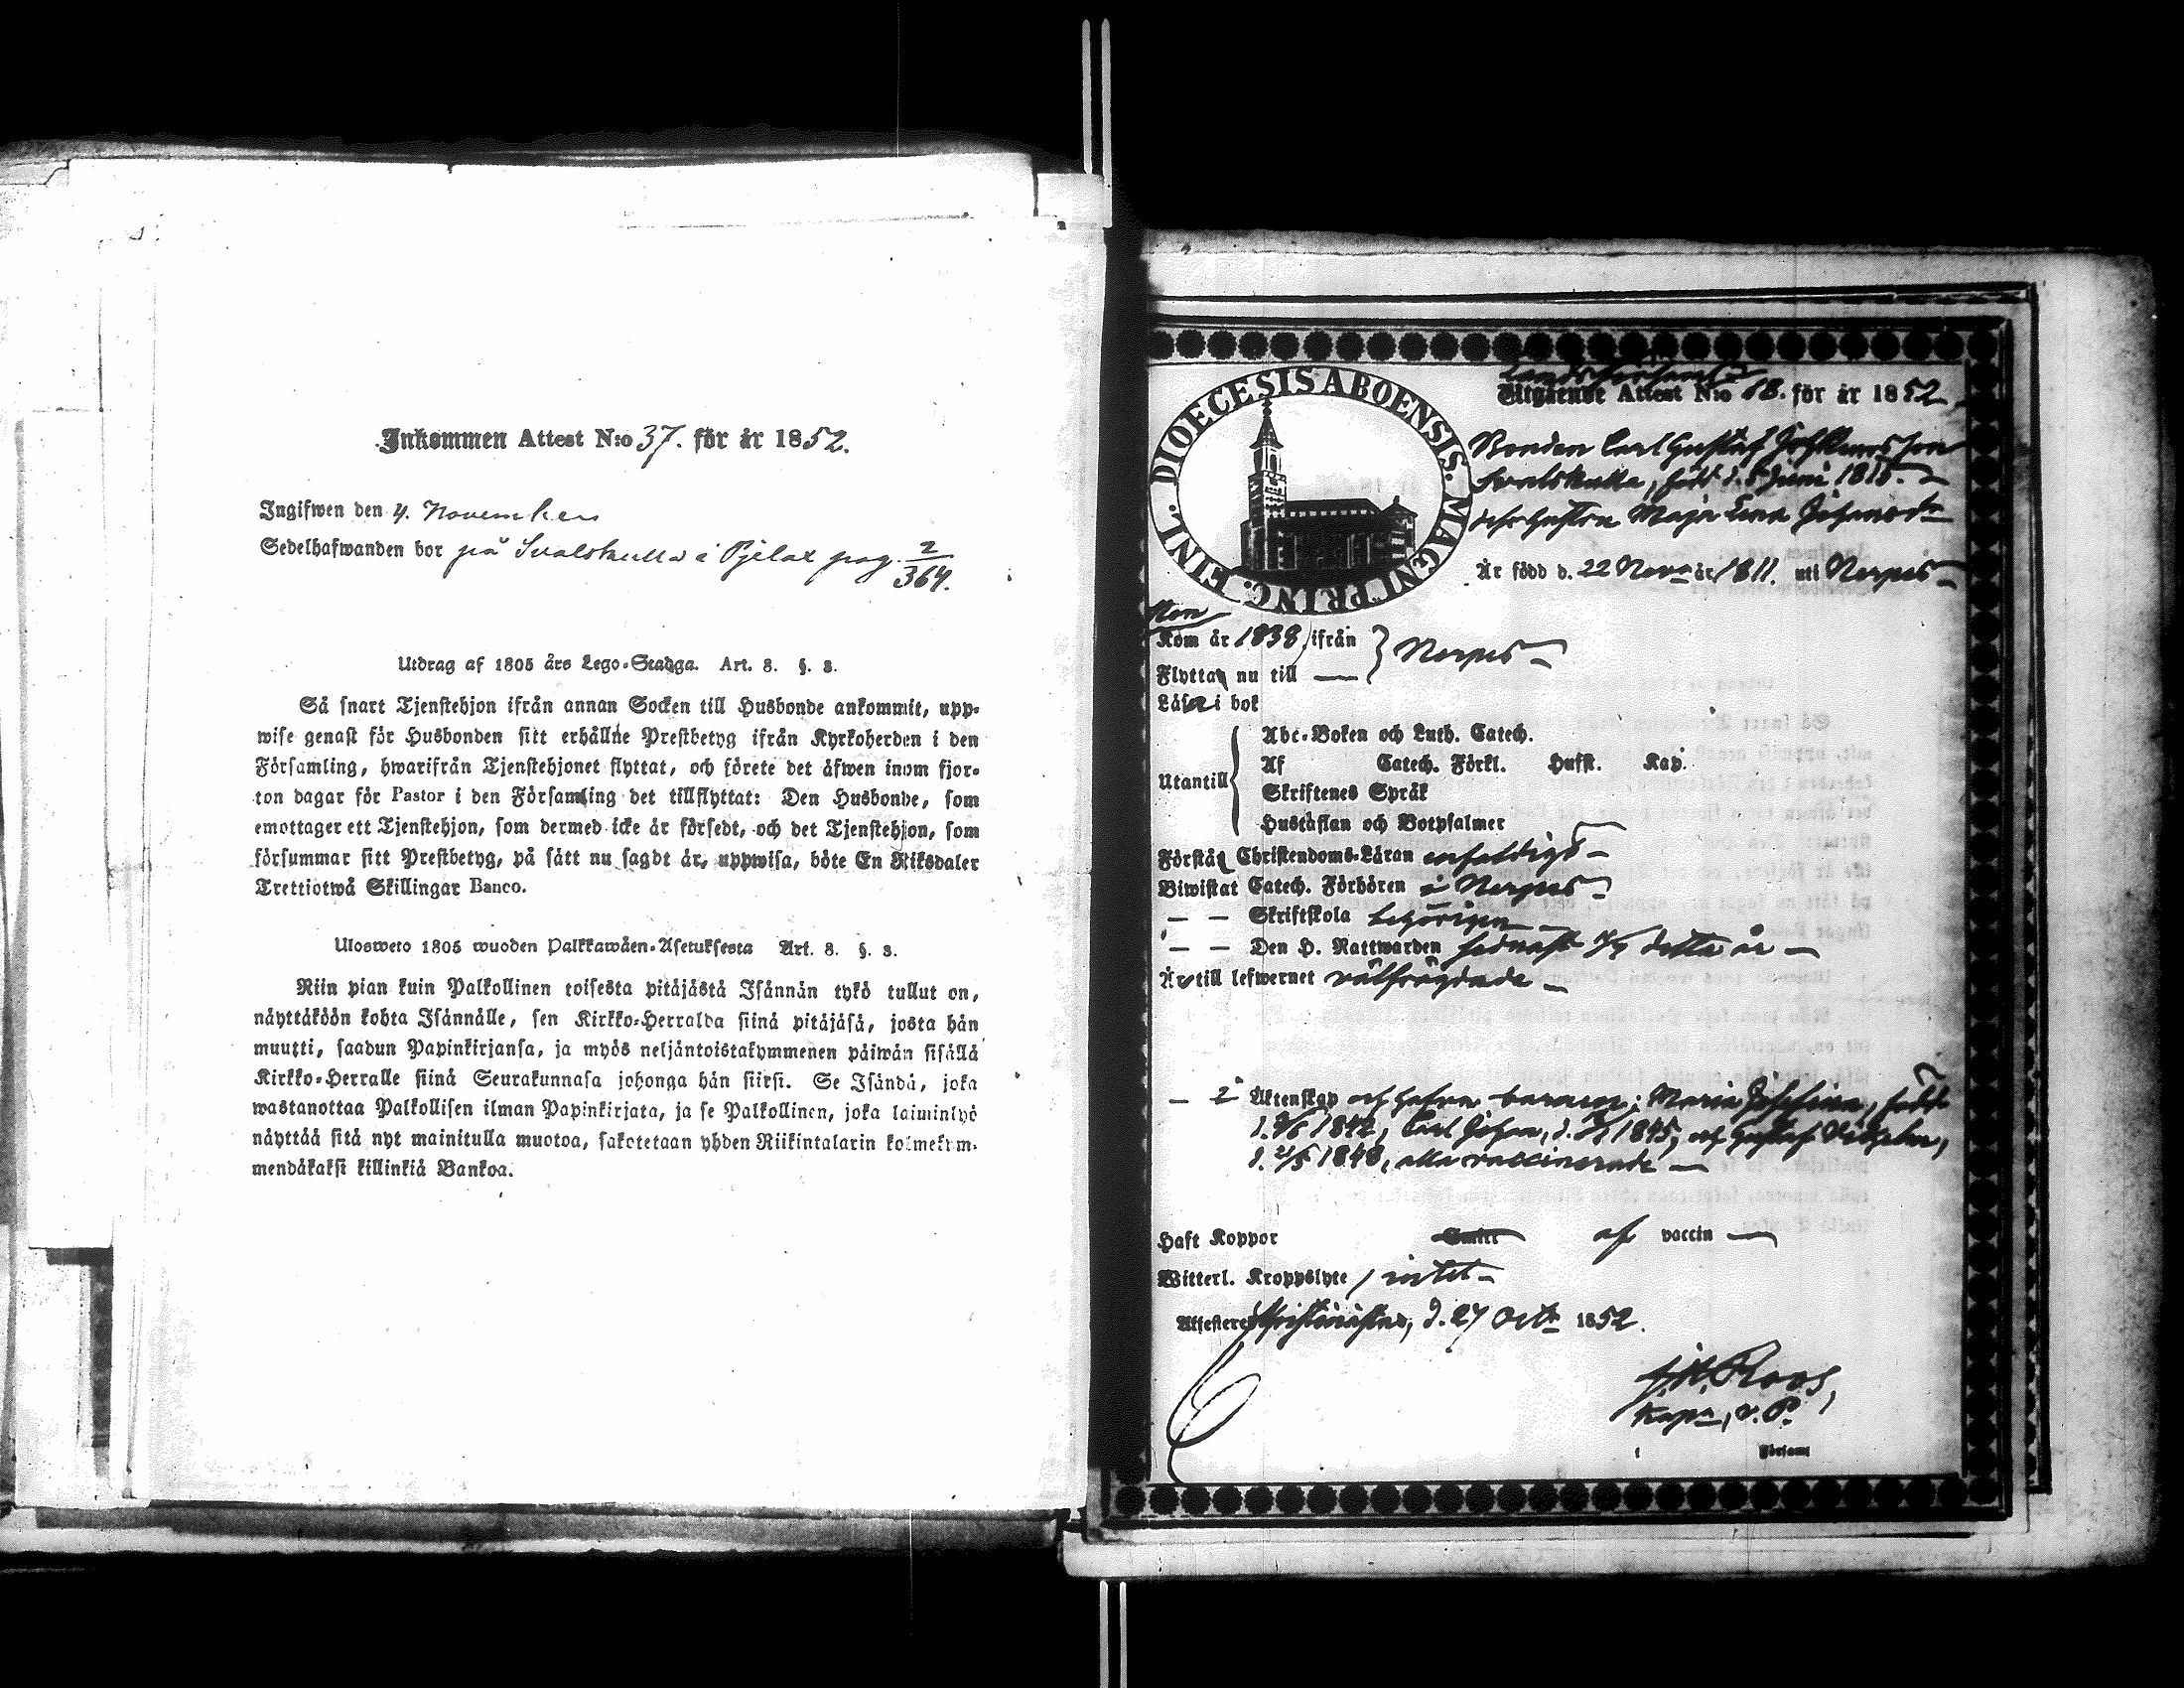 Inkommen Attest N:o 37. för år 1852.
Ingifwen den 4. November
Sedelhafwanden bor på Svalskulla i Pjelax pag. 2/364.
Utdrag af 1805 års Lego-Stadga. Art. 8. §. 3.
Så snart Tjenstehjon ifrån annan Socken till Husbonde ankommit, upp-
wise genast för Husbonden sitt erhållne Prestbetyg ifrån Kyrkoherden i den
Församling, hwarifrån Tjenstehjonet flyttat, och förete det äfwen inom fjor-
ton dagar för Pastor i den Församling det tillflyttat: Den Husbonde, som
emottager ett Tjenstehjon, som dermed icke är försedt, och det Tjenstehjon, som
försummar sitt Prestbetyg, på sätt nu sagdt är, uppwisa, böte En Riksdaler
Trettiotwå Skillingar Banco.
Ulosweto 1805 wuoden Palkkawäen-Asetuksesta Art. 8. §. 3.
Niin pian kuin Palkollinen toisesta pitäjästä Isännän tykö tullut on,
näyttäköön kohta Isännälle, sen Kirkko-Herralda siinä pitäjäsä, josta hän
muutti, saadun Papinkirjansa, ja myös neljäntoistakymmenen päiwän sisällä
Kirkko-Herralle siinä Seurakunnasa johonga hän siirsi. Se Isändä, joka
wastanottaa Palkollisen ilman Papinkirjata, ja se Palkollinen, joka laiminlyö
näyttää sitä nyt mainitulla muotoa, sakotetaan yhden Riikintalarin kolmekym-
mendäkaksi killinkiä Bankoa.
DIOECESIS ABOENSIS. MAGNI PRINC. FINL.
Utgående Attest N:o 18. för år 1852.
Bonden Carl Gustaf son
Svalskulla, född d. 5 Juni 1815.
och hustru Maja Lena Johansdr
Är född d. 22 Novr år 1811. uti Nerpes
Kom år 1838, ifrån } Nerpes
Flytta nu till
Läsa i bok
Utantill { Abc-Boken och Luth. Catech.
Af Catech. Förkl. Husst. Kap.
Skriftenes Språk
Hustaflan och Botpsalmer
Förstå Christendoms-Läran enfaldigt
Biwistat Catech. Förhören i Nerpes
— — Skriftskola behörigen
— — Den H. Nattwarden sednast detta år
Är till lefwernet välfrägdade
— 2 Äktenskap och hafva barnen: Maria Josefina, född
d. 1842, Carl Johan, d. 1845, och Gustaf Wilhelm,
d. 2/5 1848, alla vaccinerade
Haft Koppor af vaccin
Witterl. Kroppslyte, intet
Attesterer Kristinestad, d. 27 Octr 1852.
Roos,
Kapn, v. P.
i Församl